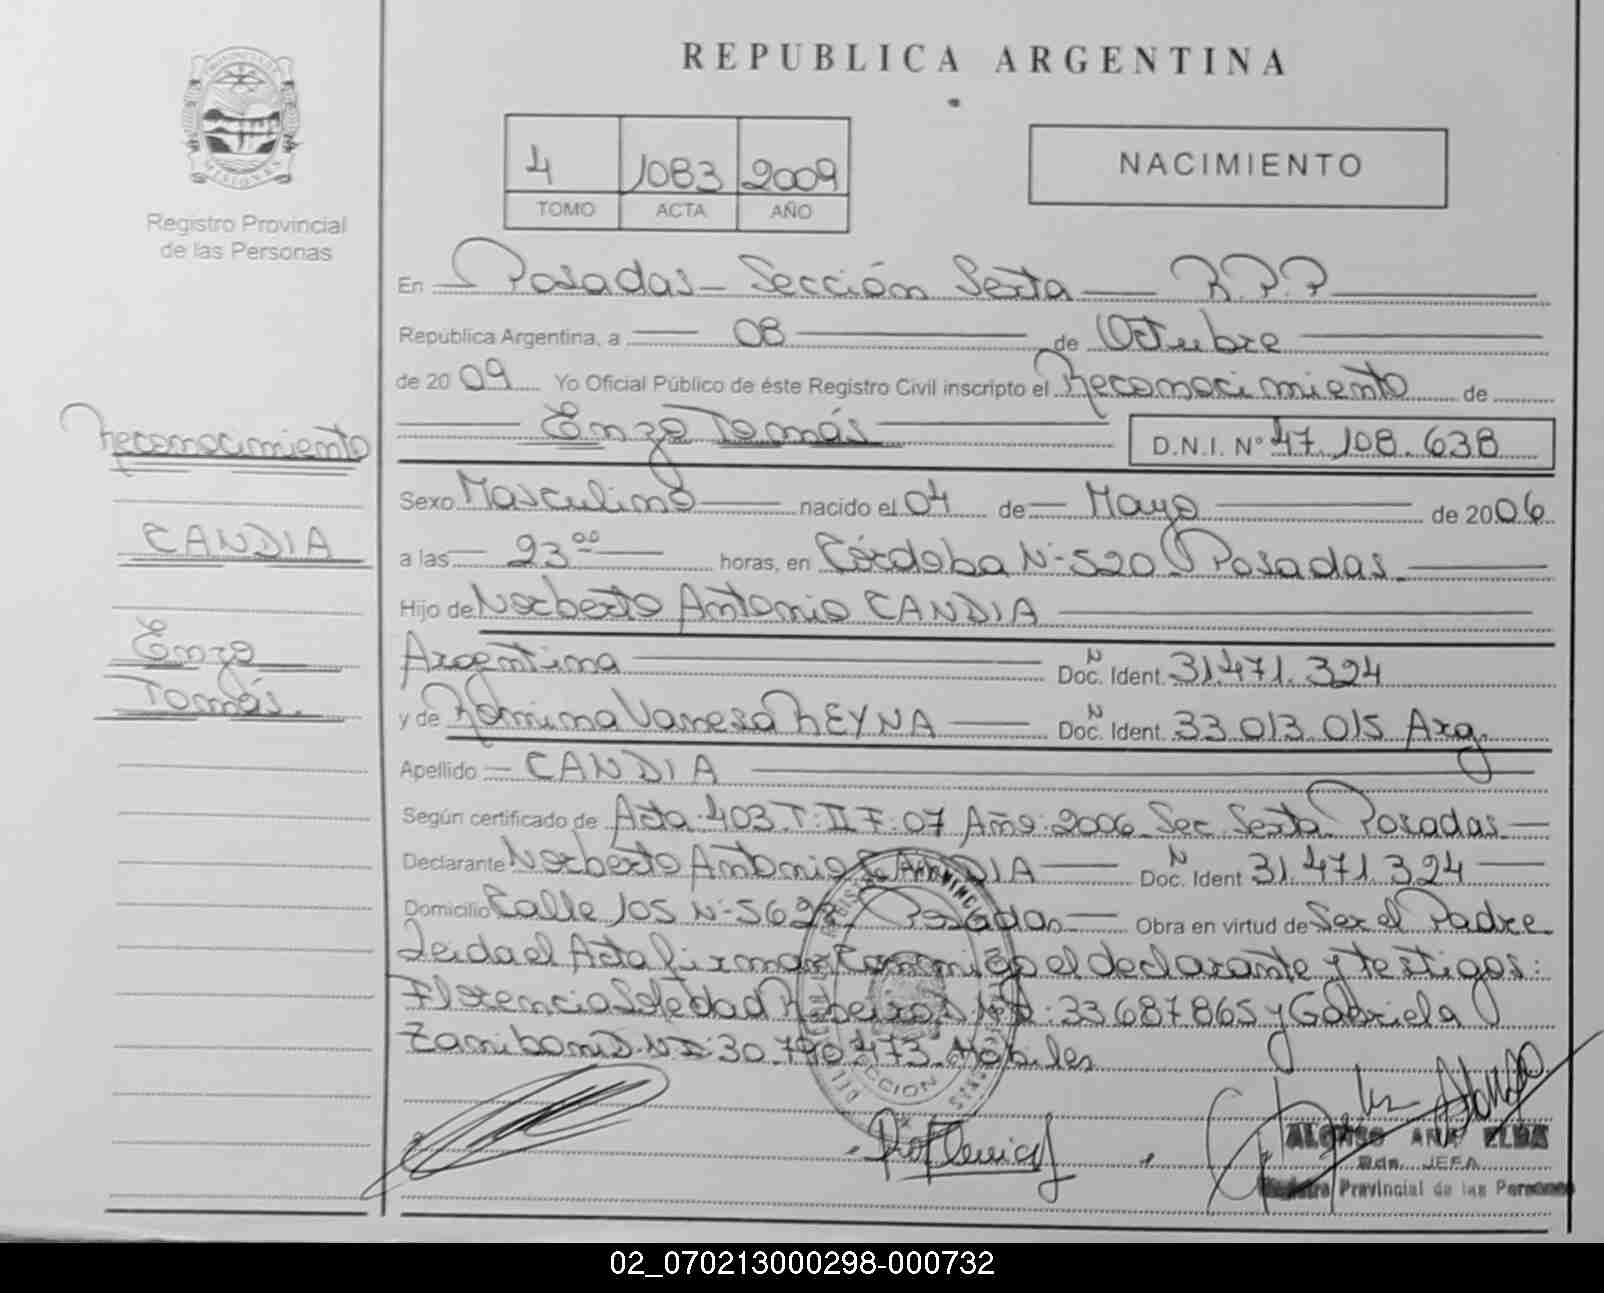 REPUBLICA ARGENTINA
PROVINCIA DE MISIONES
Registro Provincial
de las Personas
4 1083 2009
TOMO ACTA AÑO
NACIMIENTO
En Posadas - Sección Sexta - R.P.P
República Argentina, a 08 de Octubre
de 2009 Yo Oficial Público de éste Registro Civil inscripto el Reconocimiento de
Enzo Tomás D.N.I. Nº 47.108.638
Reconocimiento
CANDIA
Enzo
Tomás.
Sexo Masculino nacido el 04 de Mayo de 2006
a las 23 00 horas, en Córdoba Nº 520 Posadas.
Hijo de Norberto Antonio CANDIA
Argentina Doc. N Ident. 31.471.324
y de Romina Vanesa REYNA Doc. N Ident. 33.013.015 Arg.
Apellido CANDIA
Según certificado de Acta: 403 T: II F: 07 Año: 2006 Sec. Sexta Posadas
Declarante Norberto Antonio CANDIA Doc. N Ident 31.471.324
Domicilio Calle 105 Nº 5627 Posadas Obra en virtud de Ser el Padre
Leida el Acta firman conmigo el declarante y testigos:
Florencia Soledad Ribeiro D.N.I: 33687865 y Gabriela
Zaniboni D.N.I: 30.790.473 Hábiles
ALONSO ANA ELBA
JEFA
Registro Provincial de las Personas
02_070213000298-000732